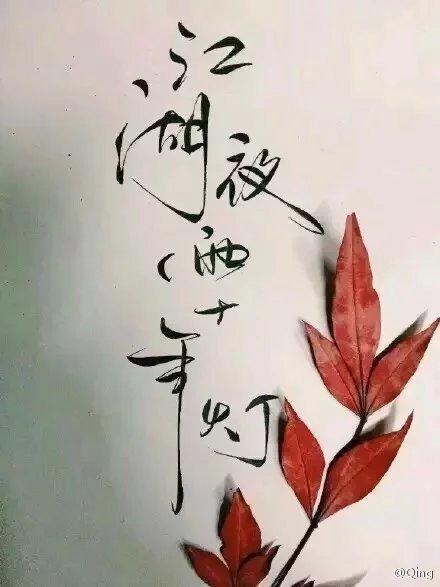 江湖夜雨十年灯
@Qing